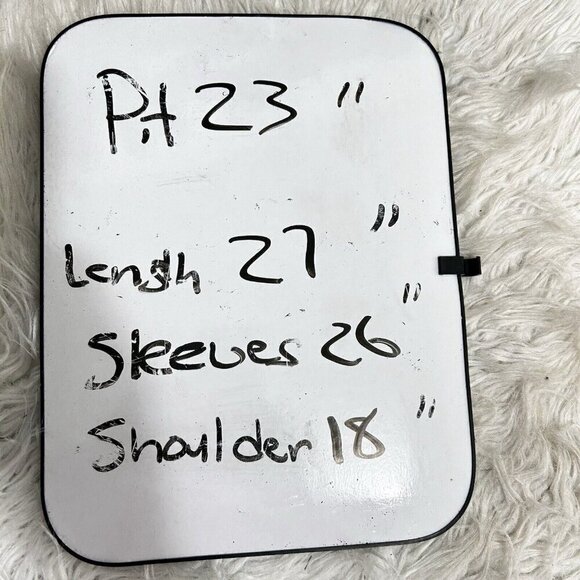 Pit 23 "
Length 27 "
Sleeves 26 "
Shoulder 18 "